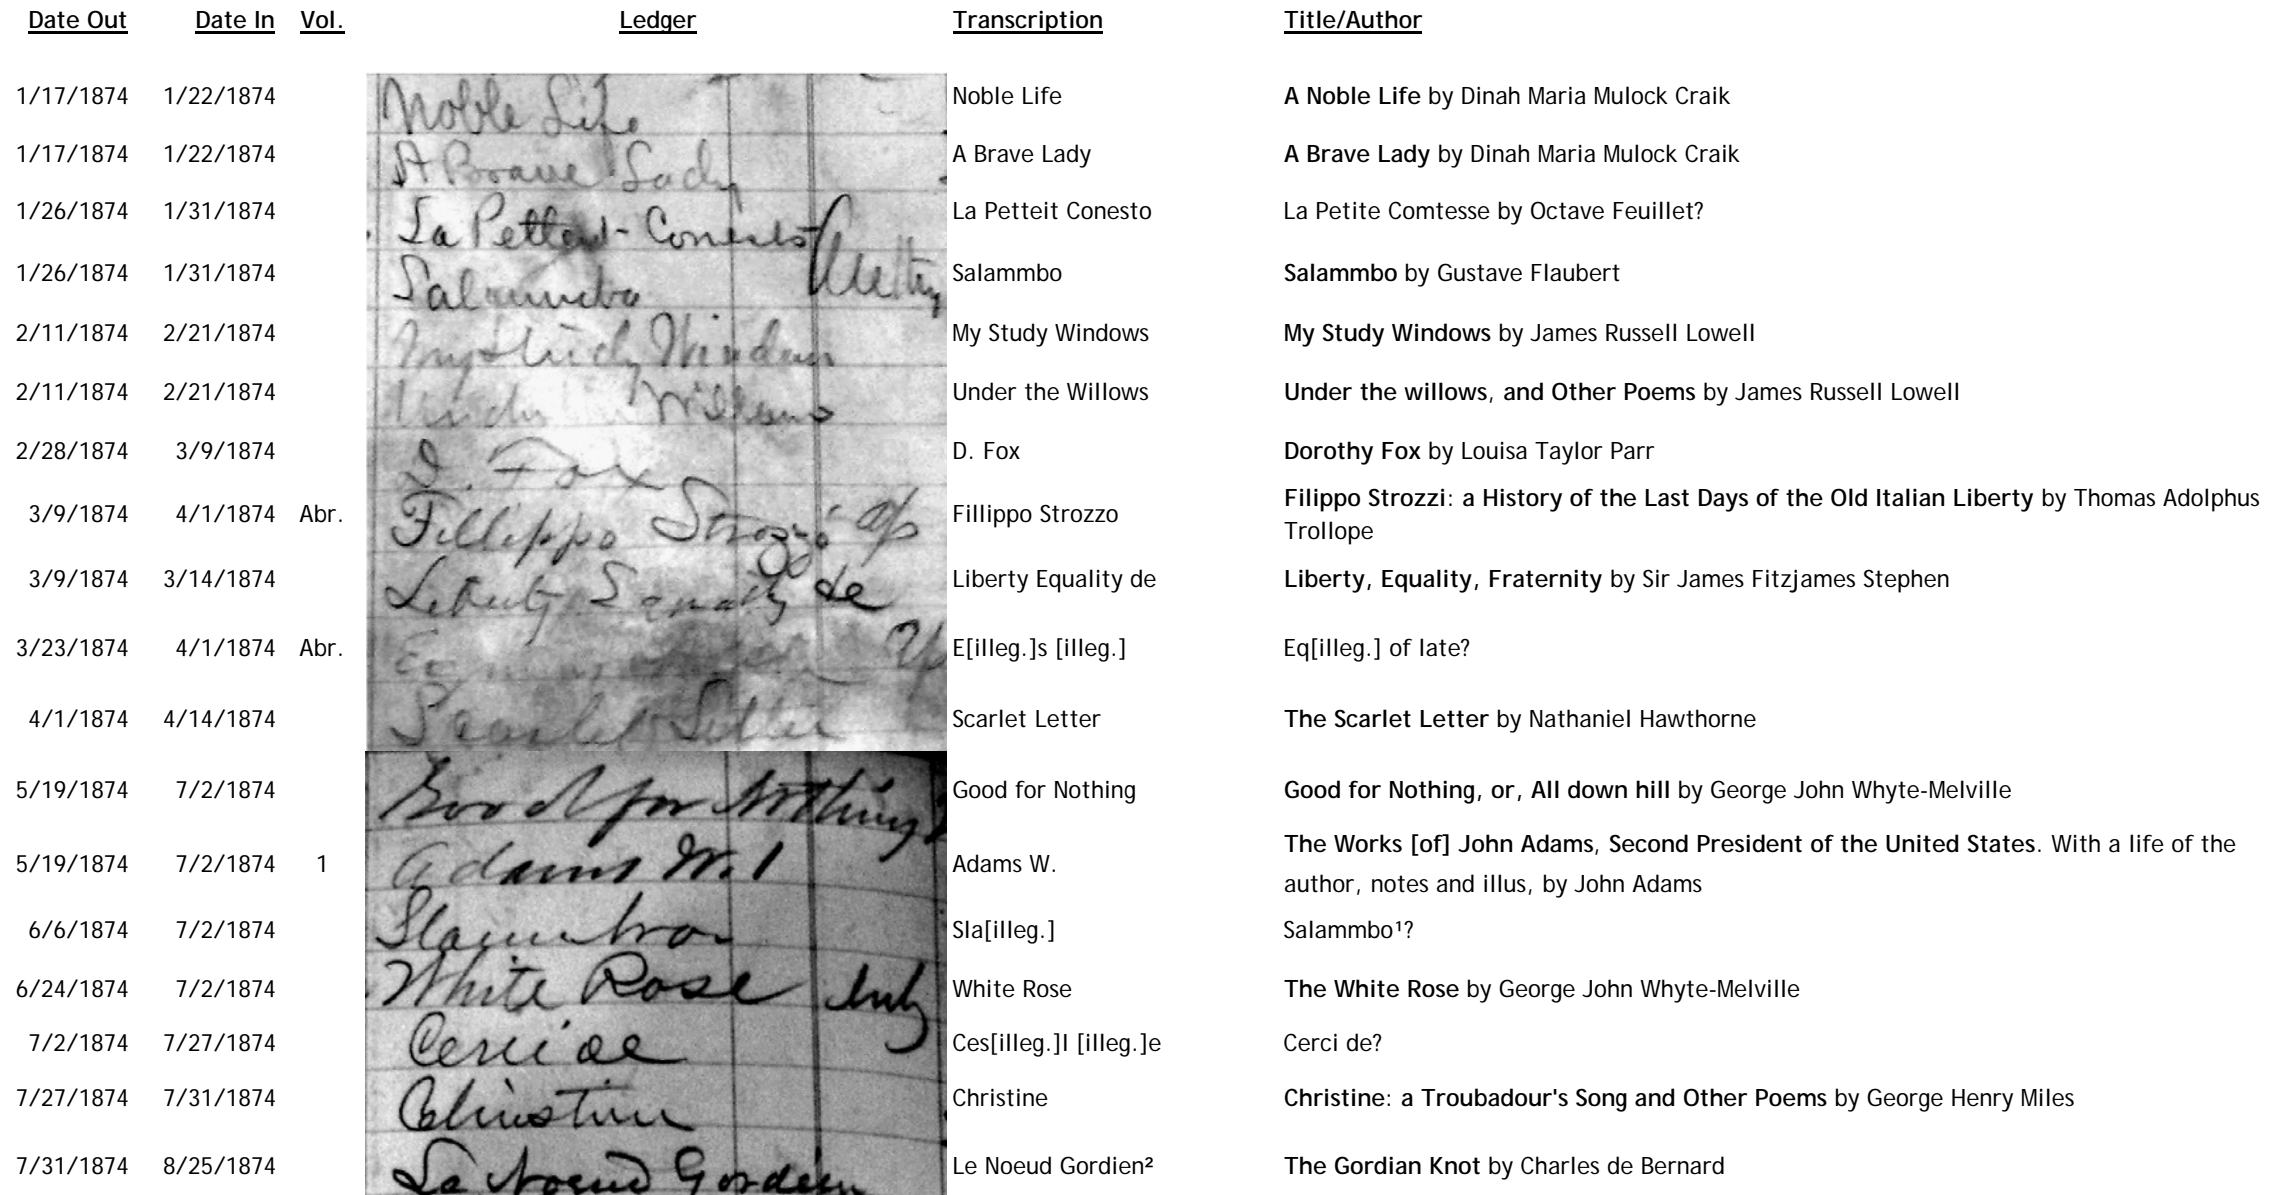 Date Out Date In Vol. Ledger Transcription Title/Author
1/17/1874 1/22/1874 Noble Life Noble Life A Noble Life by Dinah Maria Mulock Craik
1/17/1874 1/22/1874 A Brave Lady A Brave Lady A Brave Lady by Dinah Maria Mulock Craik
1/26/1874 1/31/1874 La Petteit-Conesto La Petteit Conesto La Petite Comtesse by Octave Feuillet?
1/26/1874 1/31/1874 Salammbo Salammbo Salammbo by Gustave Flaubert
2/11/1874 2/21/1874 My Study Windows My Study Windows My Study Windows by James Russell Lowell
2/11/1874 2/21/1874 Under the Willows Under the Willows Under the willows, and Other Poems by James Russell Lowell
2/28/1874 3/9/1874 D. Fox D. Fox Dorothy Fox by Louisa Taylor Parr
3/9/1874 4/1/1874 Abr. Fillippo Strozzi Fillippo Strozzo Filippo Strozzi: a History of the Last Days of the Old Italian Liberty by Thomas Adolphus
Trollope
3/9/1874 3/14/1874 Liberty Equality de Liberty Equality de Liberty, Equality, Fraternity by Sir James Fitzjames Stephen
3/23/1874 4/1/1874 Abr. E[illeg.]s [illeg.] Eq[illeg.] of late?
4/1/1874 4/14/1874 Scarlet Letter Scarlet Letter The Scarlet Letter by Nathaniel Hawthorne
5/19/1874 7/2/1874 Good for Nothing Good for Nothing Good for Nothing, or, All down hill by George John Whyte-Melville
5/19/1874 7/2/1874 1 Adams W. 1 Adams W. The Works [of] John Adams, Second President of the United States. With a life of the
author, notes and illus, by John Adams
6/6/1874 7/2/1874 Sla[illeg.] Salammbo¹?
6/24/1874 7/2/1874 White Rose July White Rose The White Rose by George John Whyte-Melville
7/2/1874 7/27/1874 Ces[illeg.]l [illeg.]e Cerci de?
7/27/1874 7/31/1874 Christine Christine Christine: a Troubadour's Song and Other Poems by George Henry Miles
7/31/1874 8/25/1874 La Noeud Gordien Le Noeud Gordien² The Gordian Knot by Charles de Bernard